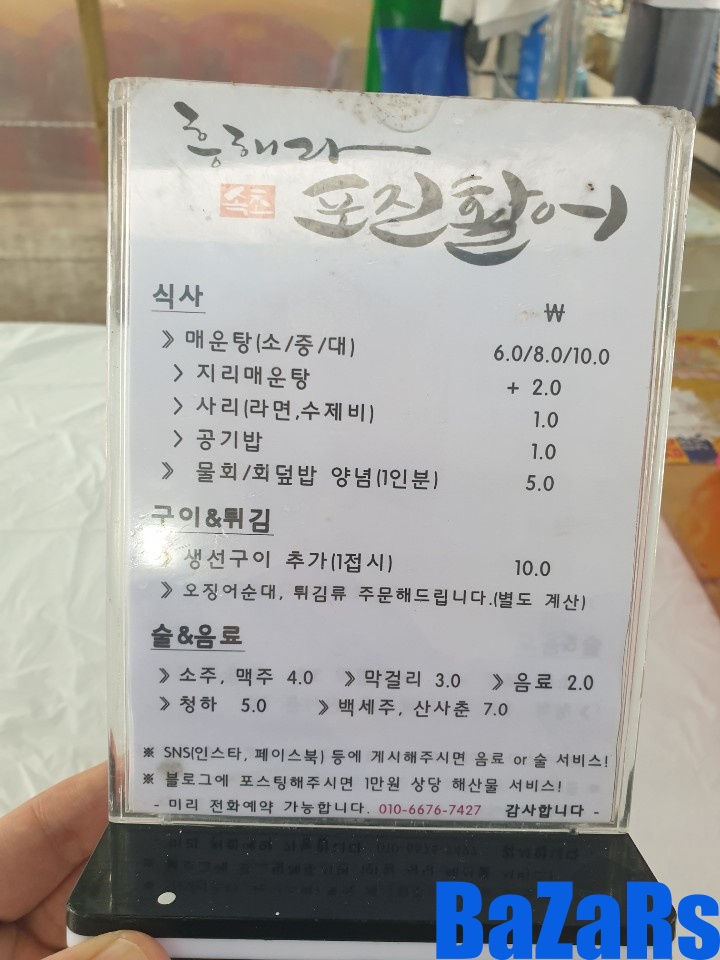 흥해라
속초 포진활어
식사 ₩
》 매운탕(소/중/대) 6.0/8.0/10.0
> 지리매운탕 + 2.0
> 사리(라면,수제비) 1.0
> 공기밥 1.0
》 물회/회덮밥 양념(1인분) 5.0
구이&튀김
》 생선구이 추가(1접시) 10.0
》 오징어순대, 튀김류 주문해드립니다.(별도 계산)
술&음료
》 소주, 맥주 4.0 》 막걸리 3.0 》 음료 2.0
》 청하 5.0 》 백세주, 산사춘 7.0
※ SNS(인스타, 페이스북) 등에 게시해주시면 음료 or 술 서비스!
※ 블로그에 포스팅해주시면 1만원 상당 해산물 서비스!
- 미리 전화예약 가능합니다. 010-6676-7427 감사합니다 -
BaZaRs